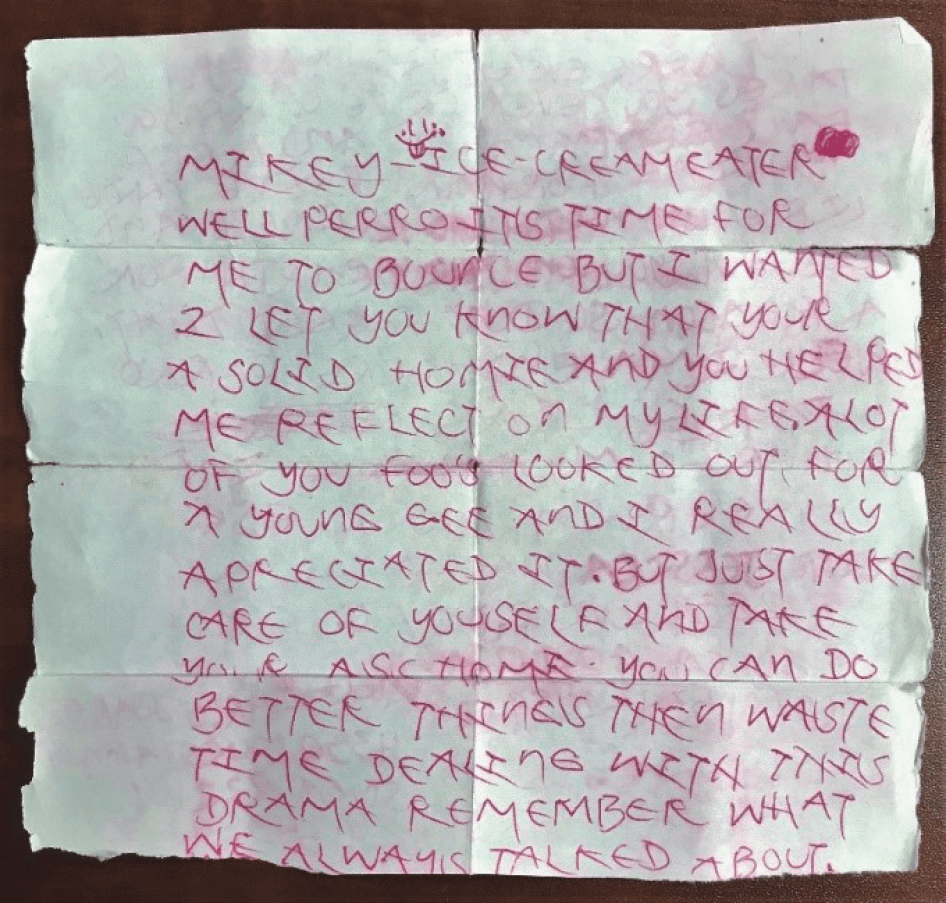 MIKEY-ICE-CREAM EATER
WELL PERRO ITS TIME FOR
ME TO BOUNCE BUT I WANTED
2 LET YOU KNOW THAT YOUR
A SOLID HOMIE AND YOU HELPED
ME REFLECT ON MY LIFE. ALOT
OF YOU FOO'S LOOKED OUT FOR
A YOUNG GEE AND I REALLY
APRECIATED IT. BUT JUST TAKE
CARE OF YOUSELF AND TAKE
YOUR ASS HOME. YOU CAN DO
BETTER THINGS THEN WAISTE
TIME DEALING WITH THIS
DRAMA REMEMBER WHAT
WE ALWAYS TALKED ABOUT.